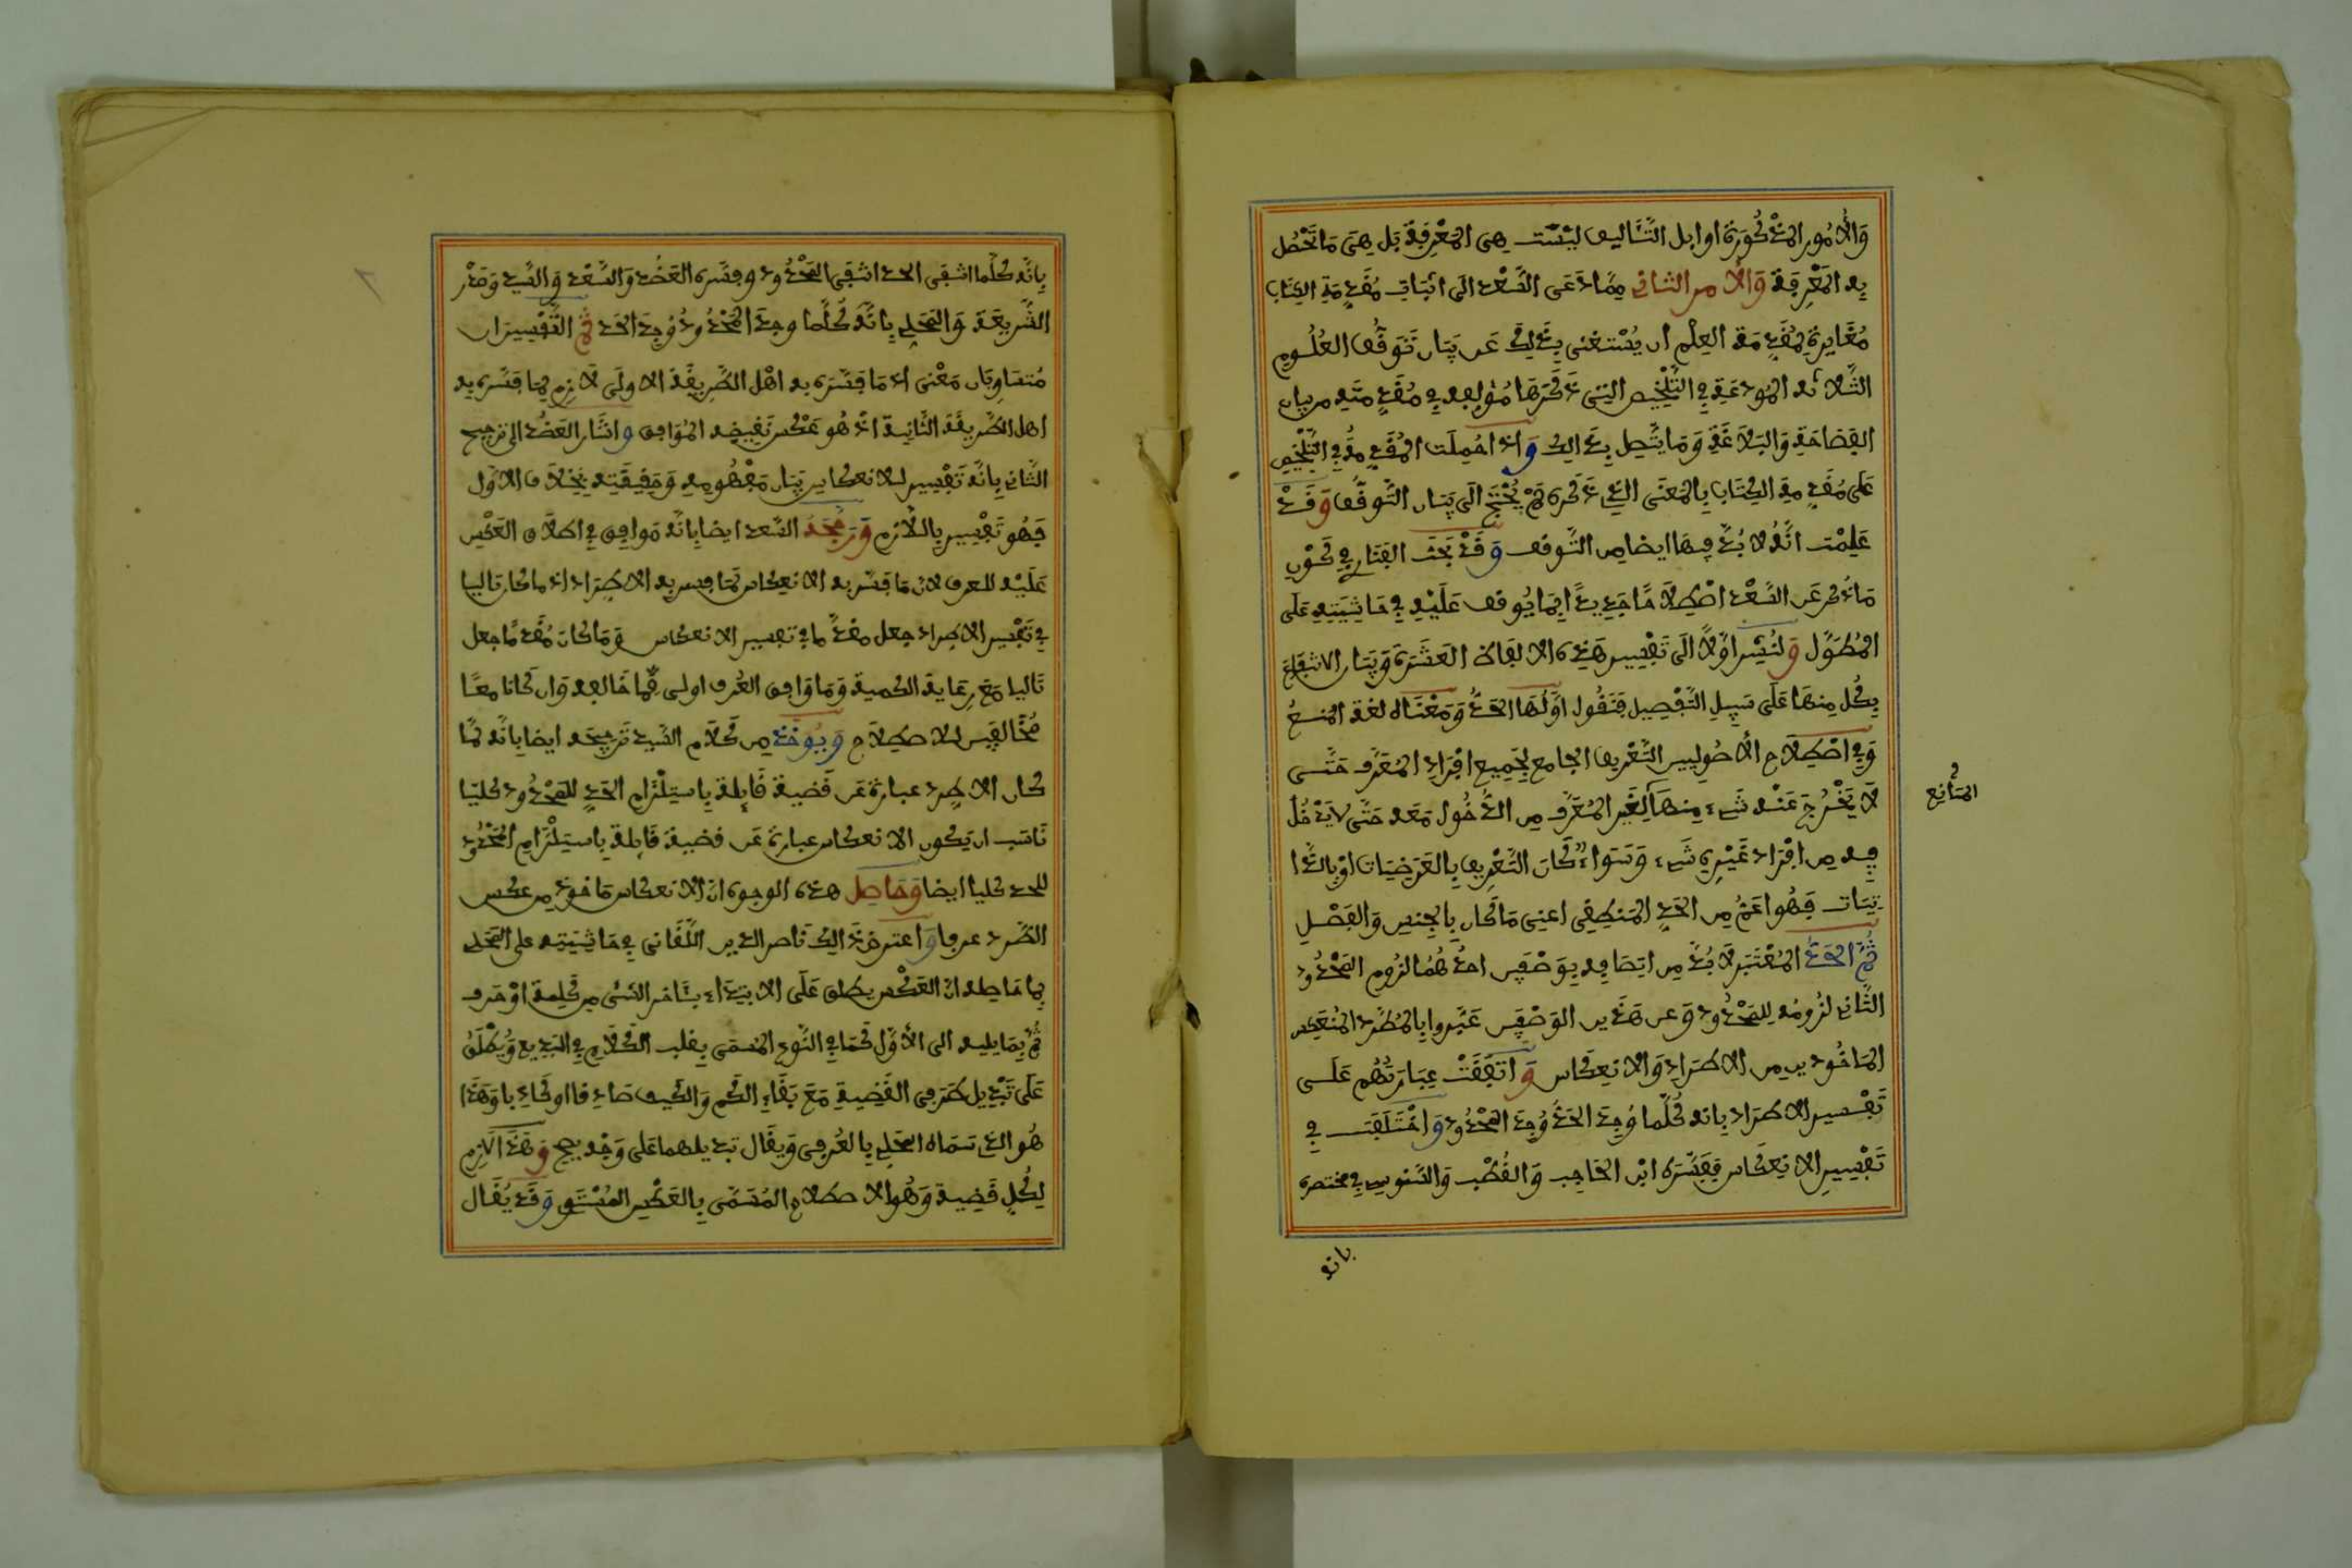 وَالأُمُور المذْكُورَة اوايل التّئاليف ليْسَت هِىَ المَعْرِفَة بَل هِىَ مَا تَحْصُل
بِه المَعْرِفَة وَالأمر الثانى مِمَّا دَعَى السَّعْد الَى اثبات مُقَدِّمَةِ الكِتَاب
مُغَايِرة لمُقَدِّمَة العِلْم ان يُسْتغنى بِذَلِكَ عَن بَيَان تَوَقُّف العُلُوم
الثّلاثه المُودعَة فِي التَّلْخِيص التى ذَكَرَهَا مُؤلفه فِي مُقَدِّمَتِه من بيان
الفصَاحَة وَالبَلاَغَةِ وَمَا يتّصِل بِذَالِك وَاذا حُمِلَت المُقَدِّمَة فِي التَّلْخِيصِ
عَلى مُقَدِّمة الكِتَاب بِالمَعْنَى الذِي ذَكَره لَمْ يُحْتَجْ الَى بَيَان التَّوقُّف وَقَدْ
عَلِمْت انَّهُ لاَ بُدَّ فِيهَا ايضا من التَّوقف وَقَدْ بَحَث الفنارِي فِي كَوْنِ
مَا ذُكر عَن السَّعْد اصْطِلاَحًا جَدِيدًا بِمَا يُوقف عَلَيْهِ فِي حَاشِيَتِهِ عَلَى
المُطَوَّل وَلنُشِر اوّلاً الَى تَفْسِير هَذِه الالفاظ العَشَرَة وَبَيَان الانتفاع
بِكُل مِنهَا عَلَى سَبِيلِ التَّفْصِيل فَنَقُول اوَّلهَا الحَدُّ وَمَعْنَاه لغة المَنعُ
وَفِي اصْطِلاَح الأصُوليين التَّعْرِيف الجامع لِجَمِيع افْرَادِ المعَرَّف حَتَّى
لاَ يَخْرُجَ عَنْه شَيء مِنهَا لِغَيْر المُعَرَّف مِن الدُّخُول مَعَه حَتَّى لاَ يَدْخُل
المَانِع
فِيه مِن افْرَاد غَيْرِه شَيء وَسَوَاءٌ كَانَ التَّعْرِيف بِالعَرَضِيَات اوْ بِالذَّا
تيات فَهُو اعَمّ مِن الحَدِّ المَنطِقِى اعنِى مَا كَان بِالجِنس وَالفَصْلِ
ثُمَّ الحَدّ المُعْتَبَر لاَ بُدَّ مِن ايصَافِه بِوَصْفَيْن احدُهُمَا لزُوم المحْدُود
الثَّانِى لزُومُه لِلمَحْدُود وَعن هَذَين الوَصْفَيْن عَبَّروا بِالمُطَّرد المُنعَكِس
المَاخُوذين من الاطِرَادِ وَالانعِكَاس وَاتفَقَتْ عِبَارَتُهُم عَلَى
تَفْسير الاطرَاد بانه كُلَّمَا وُجِدَ الحَدُّ وُجِدَ المحْدُود وَاخْتَلَفَت فِي
تَفْسِير الانعِكَاس فَفَسَّرَه ابْن الحَاجِب وَالقُطْب وَالسَّنوسِى فِي مختصره
بانه
بِانَّه كُلَّمَا انتَفَى الحد انتَفَى المَحْدُود وفسَّره العَضُد وَالسَّعْد وَالسَّيِّد وَصَدْر
الشَّرِيعَة وَالمَحَلِي بِانَّه كُلَّمَا وجدَ المَحْدُود وُجِدَ الحَد ثُمّ التَّفْسِيرَان
مُتسَاوِيَان مَعْنى اذ مَا فَسَّرَه بِه اهْل الطَّرِيقَة الاولَى لاَزِم لِمَا فَسَّره بِه
اهل الطَّرِيقَة الثَّانِية اذ هُو عَكْس نَقِيضِه المُوَافِق واشَار العَضُد الى ترجيح
الثّانى بِانَّه تَفْسِير للانعكاس بَيَان مَفْهُومِه وَحَقِيقَتِه بِخِلاَف الاوّل
فَهُو تَفْسِير بِاللاّزِم وَرَجَّحَهُ السَّعد ايضا بِانَّه مُوافِق فِي اطلاَق العَكْس
عَلَيْه للعرف لانّ مَا فَسّر به الانعِكَاس لمَا فسر به الاطِرَاد اذ ما كان تاليا
فِي تَفْسِير الاطراد جعل مقدّما فِي تفسير الانعكاس وَمَا كَانَ مُقَدَّمًا جعل
تَاليا مَعَ رِعَاية الكَميَة وَمَا وَافق العُرف اولى مِمَّا خَالفه وَان كَانا معًا
مُخَالِفَيْن للاصطِلاَح وَيُوخَذ مِن كَلاَم السَّيد تَرجِيحه ايضا بِانَّه لمَّا
كان الاطّرد عبارة عَن قَضِية قَائلة بِاستِلْزَام الحَدِّ لِلمَحْدُود كُليّا
نَاسَب ان يَكُون الانعكاس عبارة عَن قضية قَائِلة بِاستِلْزَامِ المَحْدُود
للحد كليا ايضا وَحَاصِل هذه الوجوه انّ الانعكاس مَاخوذ مِن عكس
الطَّرد عرفا وَاعترض ذَالِك ناصر الدين اللَّقَانِى فِي حَاشيته على المَحَلِى
بِمَا حَاصِله انّ العَكْس يطلق عَلَى الابتِدَاء بِئَاخر الشَىء مِن كلِمَة اوْ حَرف
ثُمَّ بِمَا يليه الى الأوَّل كَمَا فِي النَّوع المُسَمَّى بِقلب الكَلاَم فِي البَدِيع وَيُطْلَقُ
عَلَى تَبْدِيل طَرَفِى القَضِية مَعَ بَقَاءِ الكَم وَالكَيف صَادِقا او كَاذِبا وَهَذَا
هُو الذِى سَمَاه المَحَلِى بِالعُرْفِى وَيقَال تَبْدِيلهما عَلَى وَجْه يصح وَهَذَا لاَزِم
لِكُل قَضِية وَهُو الاصطلاَح المُسَمَّى بِالعَكْس المُسْتَوِى وَقَد يُقَال